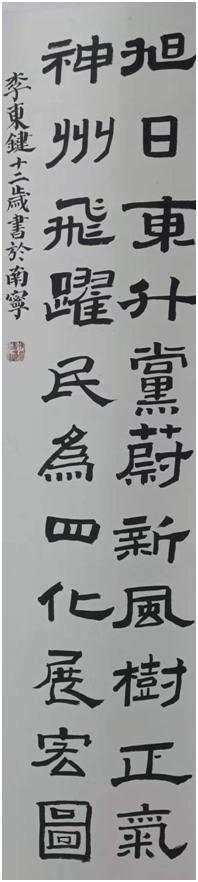 旭日東升黨蔚新風樹正氣
神州飛躍民為四化展宏圖
李東鍵十二歲書於南寧